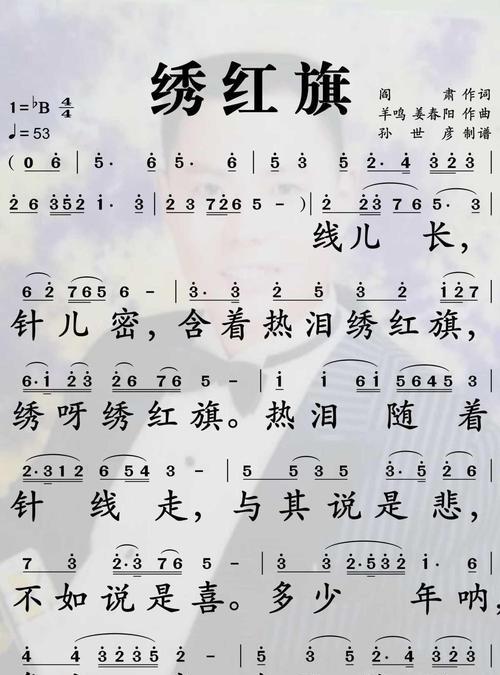 绣红旗
1=♭B 4/4
♩=53
阎 肃 作词
羊鸣 姜春阳 作曲
孙 世 彦 制谱
(0 6 | 5· 6 | 5· 6 | 5· 6 | 3 5 | 2· 4 3 2 3 |
2 6 3 5 2 1 · 2 3 7 2 6 5 - ) | 2 2 3 7 6 5 · 3 |
线儿 长,
6 2 7 6 5 6 - | 3·3 2 5 3 2 1 2 7 |
针儿密,含着热泪绣红旗,
6·1 2 3 2 2 6 7 6 5 - | 1 1 6 1 5 6 4 5 3 |
绣呀绣红旗。热泪 随着
2·3 1 2 6 5 4 3 - | 5 5 3 5 4 2 |
针 线 走,与其说是悲,
7 3 2·3 7 6 5 - | 3 3 2·5 3 2 1· 6 |
不如说是喜。多少 年呐,
4 4 3 2 3 5 2 -